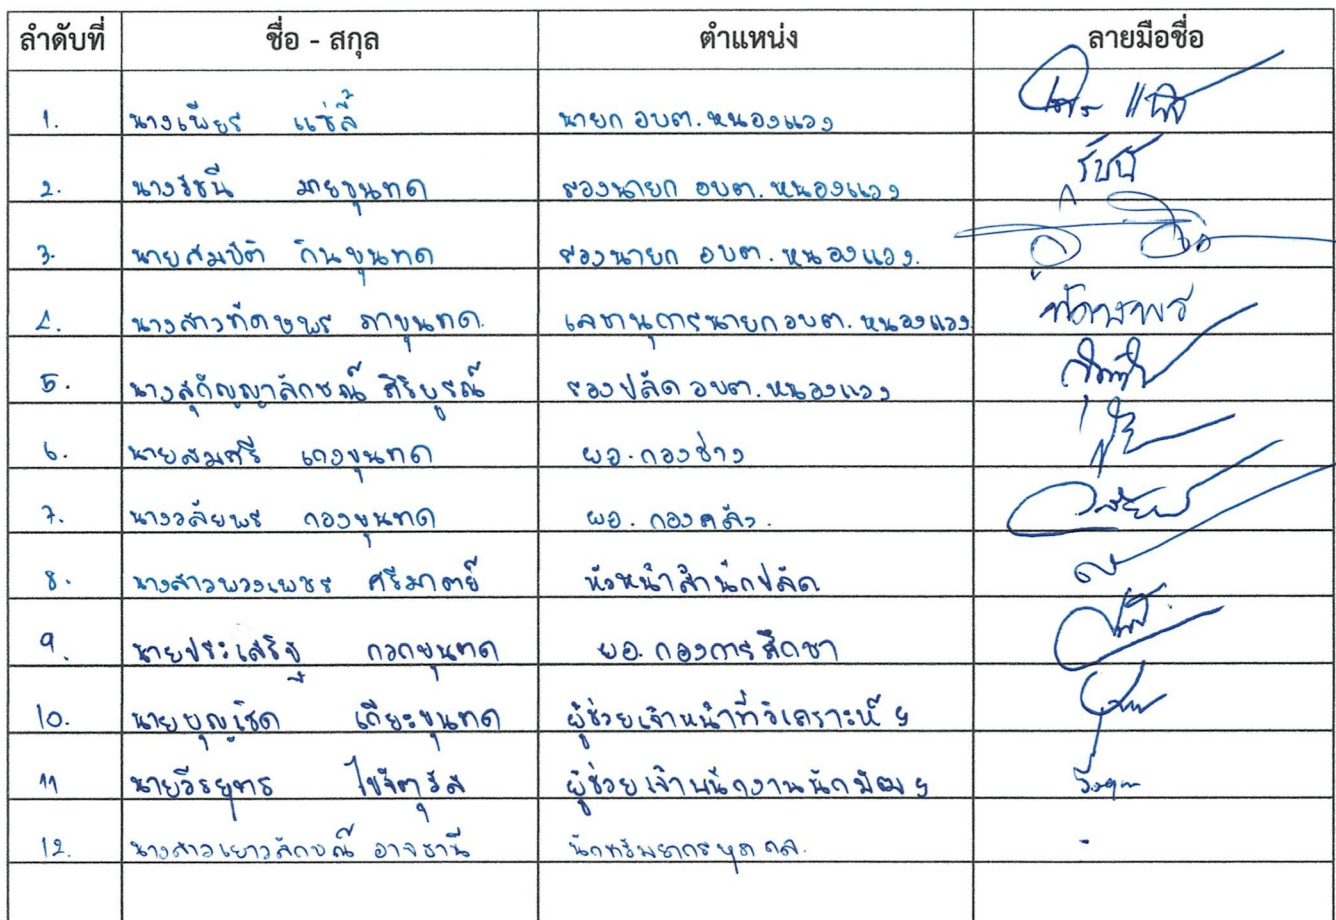 ลำดับที่ ชื่อ - สกุล ตำแหน่ง ลายมือชื่อ
1. นางเพียร แซ่ลี้ นายก อบต.หนองแวง
2. นางรัชนี มายขุนทด รองนายก อบต.หนองแวง รัชนี
3. นายสมบัติ กินขุนทด รองนายก อบต.หนองแวง.
4. นางสาวทัดษพร ภาขุนทด. เลขานุการนายกอบต.หนองแวง
5. นางสุกัญญาลักษณ์ ศิริบูรณ์ รองปลัด อบต.หนองแวง
6. นายสมศรี เกงขุนทด ผอ.กองช่าง
7. นางวลัยพร กองขุนทด ผอ. กองคลัง. วลัยพร
8. นางสาวพวงเพชร ศรีมาตย์ หัวหน้าสำนักปลัด
9. นายประเสริฐ กวกขุนทด ผอ. กองการศึกษา
10. นายบุญเชิด เกียะขุนทด ผู้ช่วยเจ้าหน้าที่วิเคราะห์ ฯ
11 นายวีรยุทธ ผู้ช่วยเจ้าพนักงานพัฒ ฯ
12. นางสาวเยาวลักษณ์ อาจธานี นักทรัพยากรบุคคล.